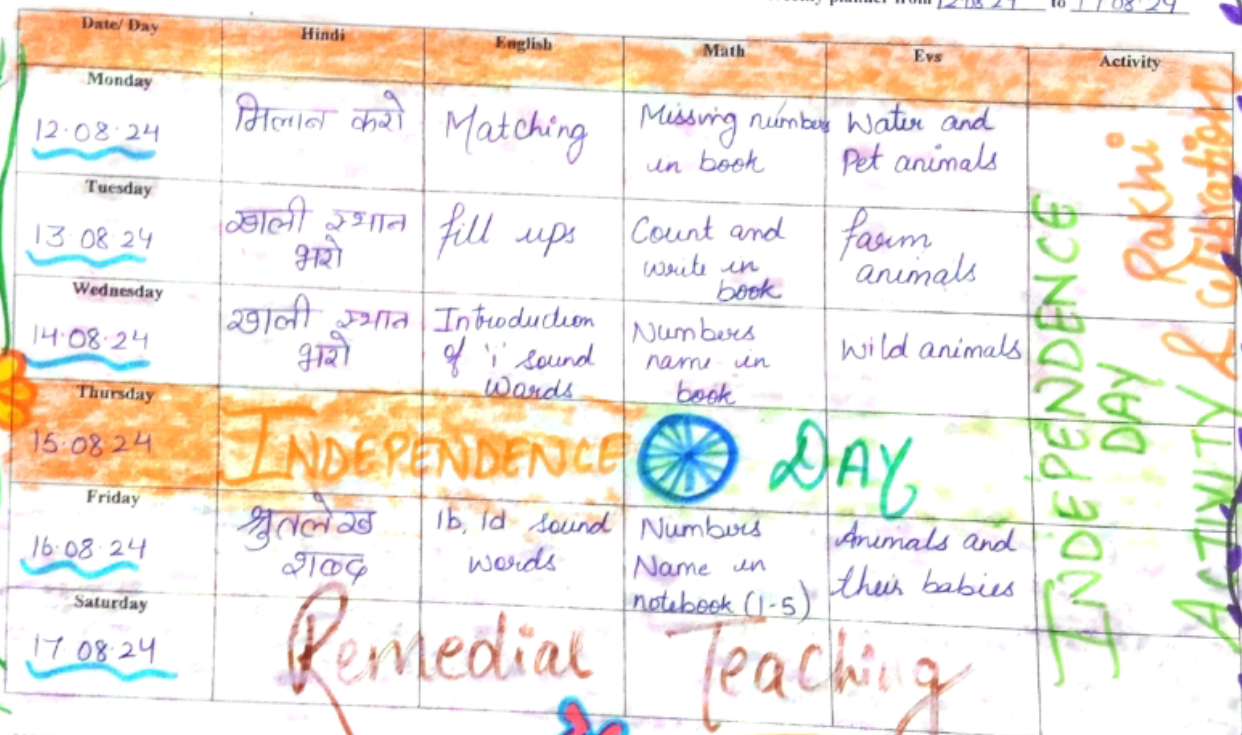 Weekly planner from 12.08.24 to 17.08.24
Date/ Day Hindi English Math Evs Activity
Monday
12.08.24
मिलान करो
Matching
Missing numbers
in book
Water and
Pet animals
Tuesday
13.08.24
खाली स्थान
भरो
fill ups
Count and
write in
book
farm
animals
Wednesday
14.08.24
खाली स्थान
भरो
Introduction
of 'i' sound
Words
Numbers
name in
book
Wild animals
Thursday
15.08.24
INDEPENDENCE DAY
Friday
16.08.24
श्रुतलेख
शब्द
ib, id sound
words
Numbers
Name in
notebook (1-5)
Animals and
their babies
Saturday
17.08.24
Remedial Teaching
INDEPENDENCE
DAY
ACTIVITY
Rakhi
& celebration